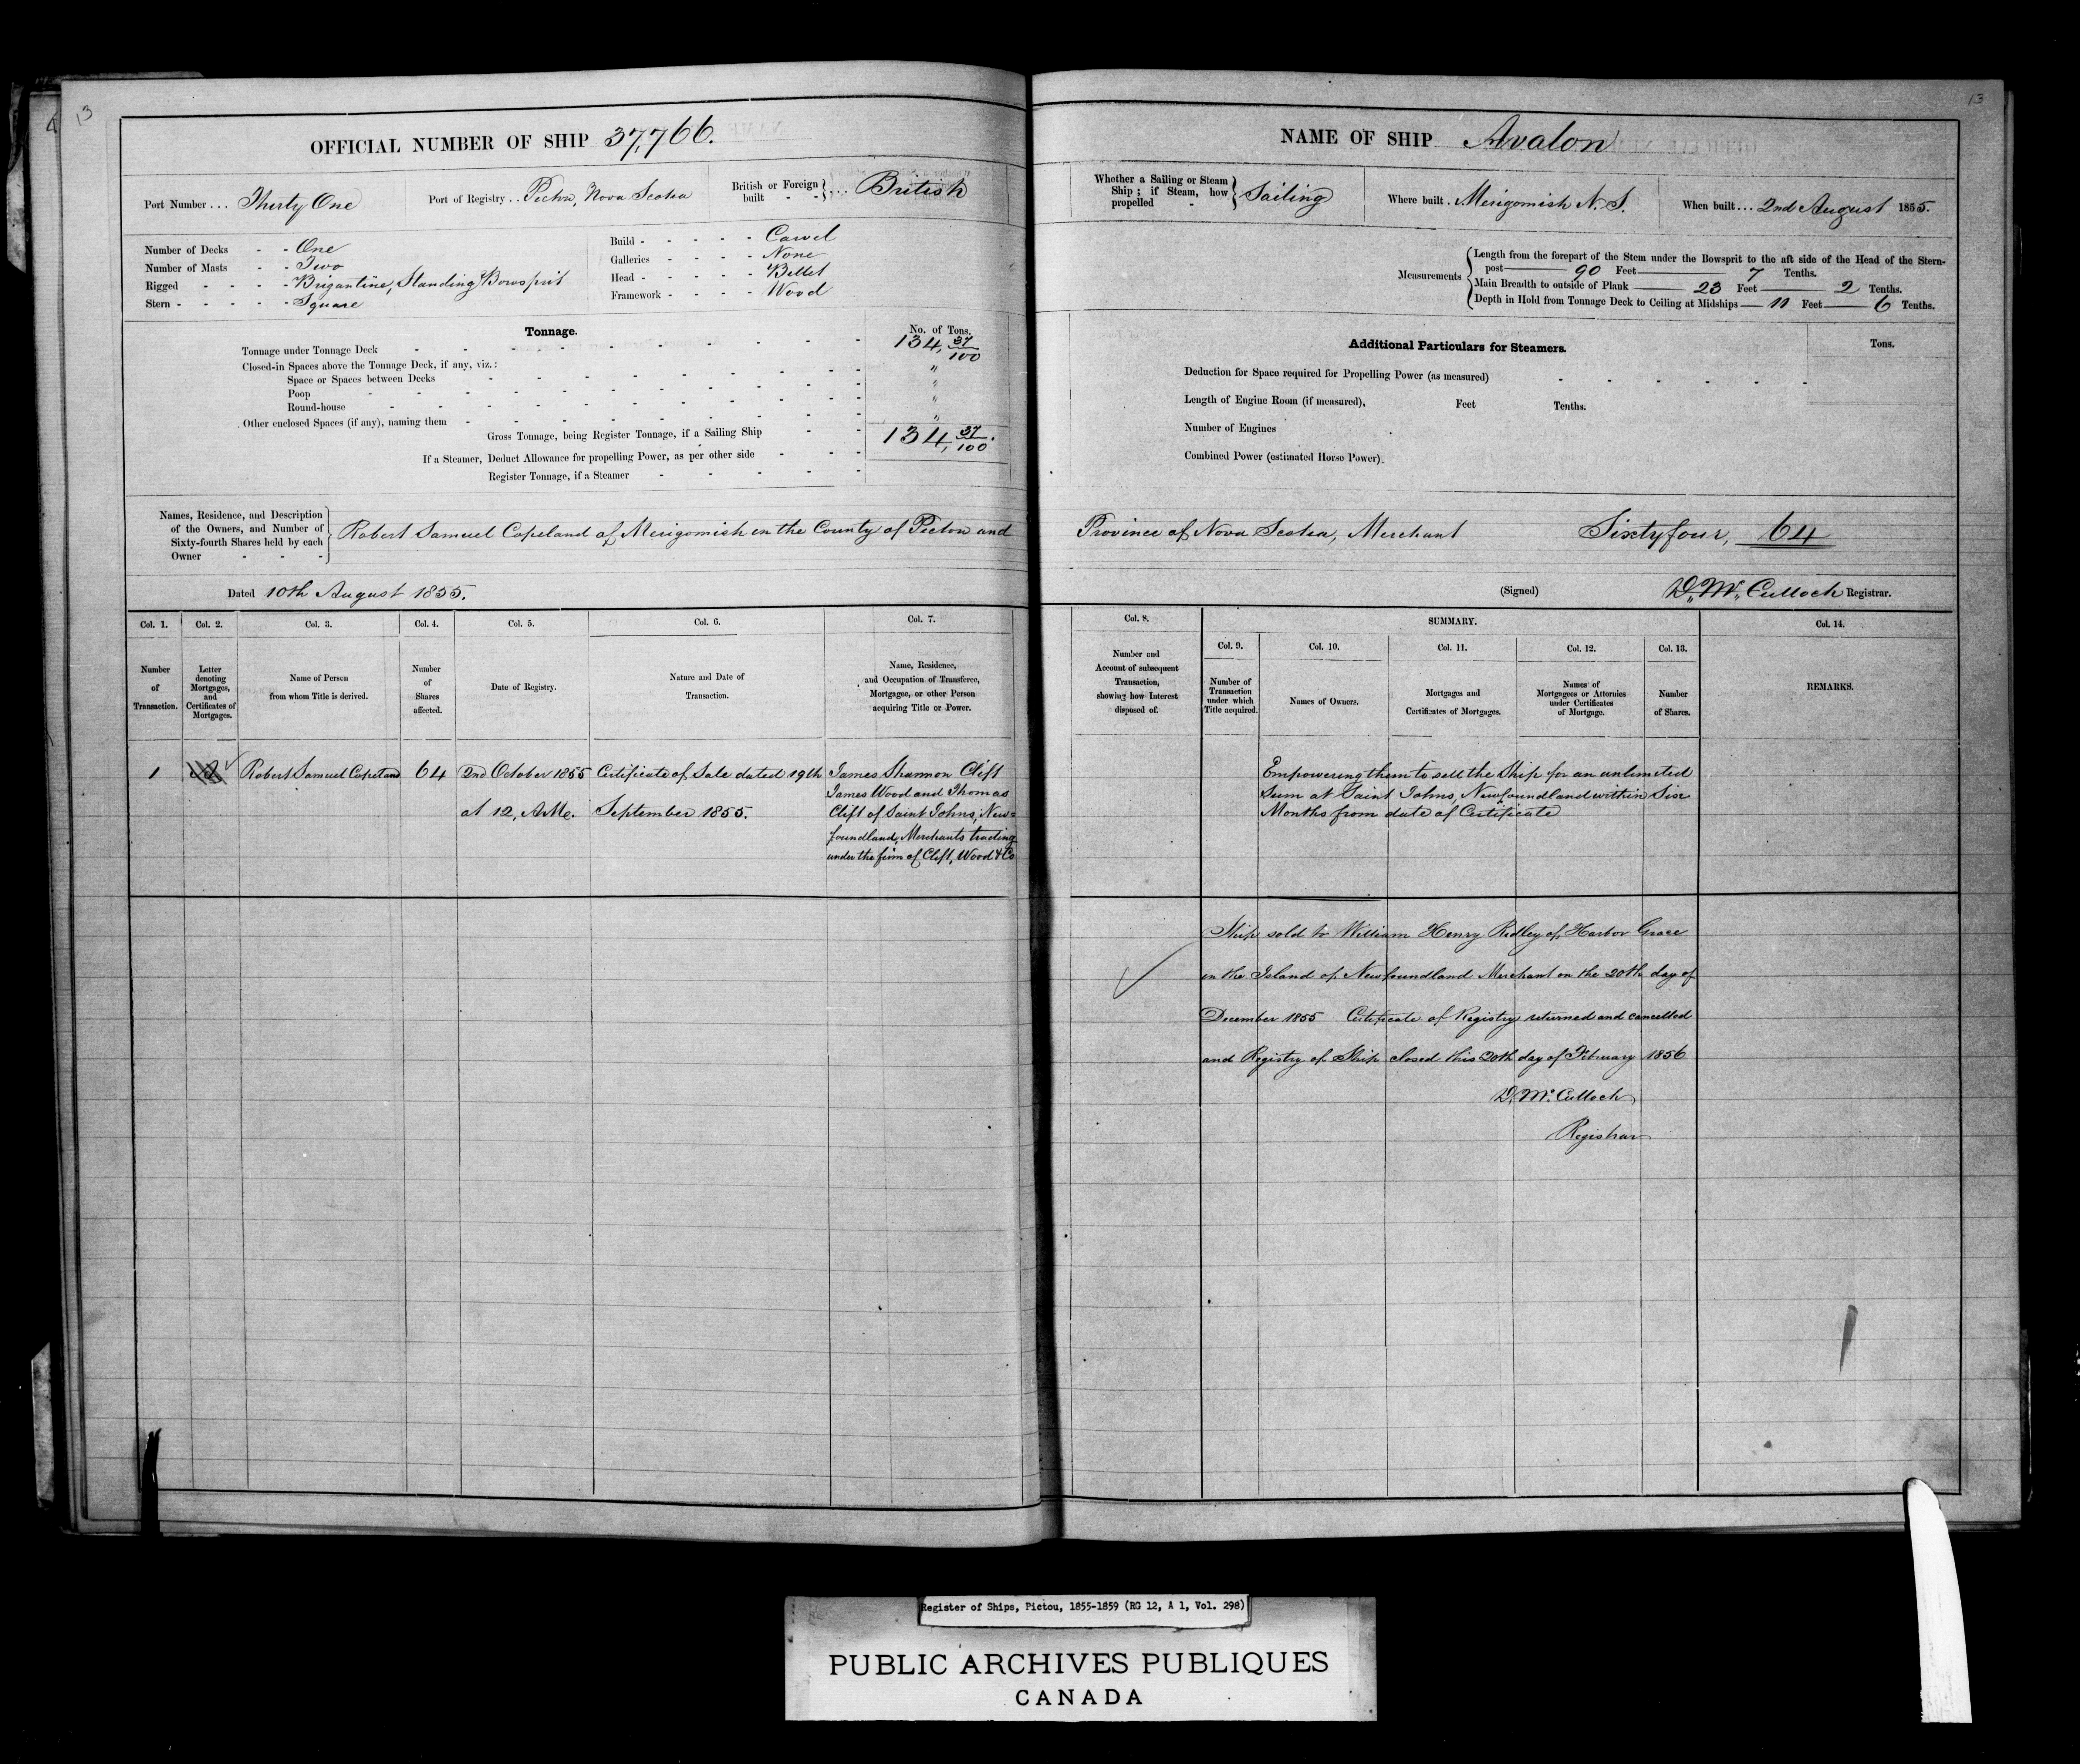 13
OFFICIAL NUMBER OF SHIP 37,766.
Port Number ... Thirty One
Port of Registry .. Pictou, Nova Scotia
British or Foreign built - - } ... British
Number of Decks - - One
Number of Masts - - Two
Rigged - - - - - Brigantine, Standing Bowsprit
Stern - - - - - - Square
Build - - - - - - Carvel
Galleries - - - - None
Head - - - - - - Billet
Framework - - - - Wood
Tonnage.
No. of Tons.
Tonnage under Tonnage Deck 134, 37/100
Closed-in Spaces above the Tonnage Deck, if any, viz.: "
Space or Spaces between Decks "
Poop "
Round-house "
Other enclosed Spaces (if any), naming them
Gross Tonnage, being Register Tonnage, if a Sailing Ship 134, 37/100.
If a Steamer, Deduct Allowance for propelling Power, as per other side
Register Tonnage, if a Steamer
Names, Residence, and Description
of the Owners, and Number of
Sixty-fourth Shares held by each
Owner - - -
Robert Samuel Copeland of Merigomish in the County of Pictou and
Dated 10th August 1855.
Col. 1. Col. 2. Col. 3. Col. 4. Col. 5. Col. 6. Col. 7.
Number of Transaction.
Letter denoting Mortgages, and Certificates of Mortgages.
Name of Person from whom Title is derived.
Number of Shares affected.
Date of Registry.
Nature and Date of Transaction.
Name, Residence, and Occupation of Transferee, Mortgagee, or other Person acquiring Title or Power.
1
Robert Samuel Copeland
64
2nd October 1855
at 12, A.M.
Certificate of Sale dated 19th
September 1855.
James Shannon Clift
James Wood and Thomas
Clift of Saint Johns, New=
foundland, Merchants trading
under the firm of Clift, Wood & Co
13
NAME OF SHIP Avalon
Whether a Sailing or Steam Ship; if Steam, how propelled - } Sailing
Where built . Merigomish N. S.
When built ... 2nd August 1855.
Measurements
Length from the forepart of the Stem under the Bowsprit to the aft side of the Head of the Stern-
post 90 Feet 7 Tenths.
Main Breadth to outside of Plank 23 Feet 2 Tenths.
Depth in Hold from Tonnage Deck to Ceiling at Midships 11 Feet 6 Tenths.
Additional Particulars for Steamers.
Tons.
Deduction for Space required for Propelling Power (as measured)
Length of Engine Room (if measured), Feet Tenths.
Number of Engines
Combined Power (estimated Horse Power).
Province of Nova Scotia, Merchant Sixty four, 64
(Signed) D. Mc. Culloch Registrar.
Col. 8.
SUMMARY.
Col. 14.
Col. 9. Col. 10. Col. 11. Col. 12. Col. 13.
Number and Account of subsequent Transaction, showing how Interest disposed of.
Number of Transaction under which Title acquired.
Names of Owners.
Mortgages and Certificates of Mortgages.
Names of Mortgagees or Attornies under Certificates of Mortgage.
Number of Shares.
REMARKS.
Empowering them to sell the Ship for an unlimited
Sum at Saint Johns, Newfoundland within Six
Months from date of Certificate
Ship sold to William Henry Ridley of Harbor Grace
in the Island of Newfoundland Merchant on the 20th day of
December 1855 Certificate of Registry returned and cancelled
and Registry of Ship closed this 20th day of February 1856
D. Mc. Culloch
Registrar
Register of Ships, Pictou, 1855-1859 (RG 12, A 1, Vol. 298)
PUBLIC ARCHIVES PUBLIQUES
CANADA